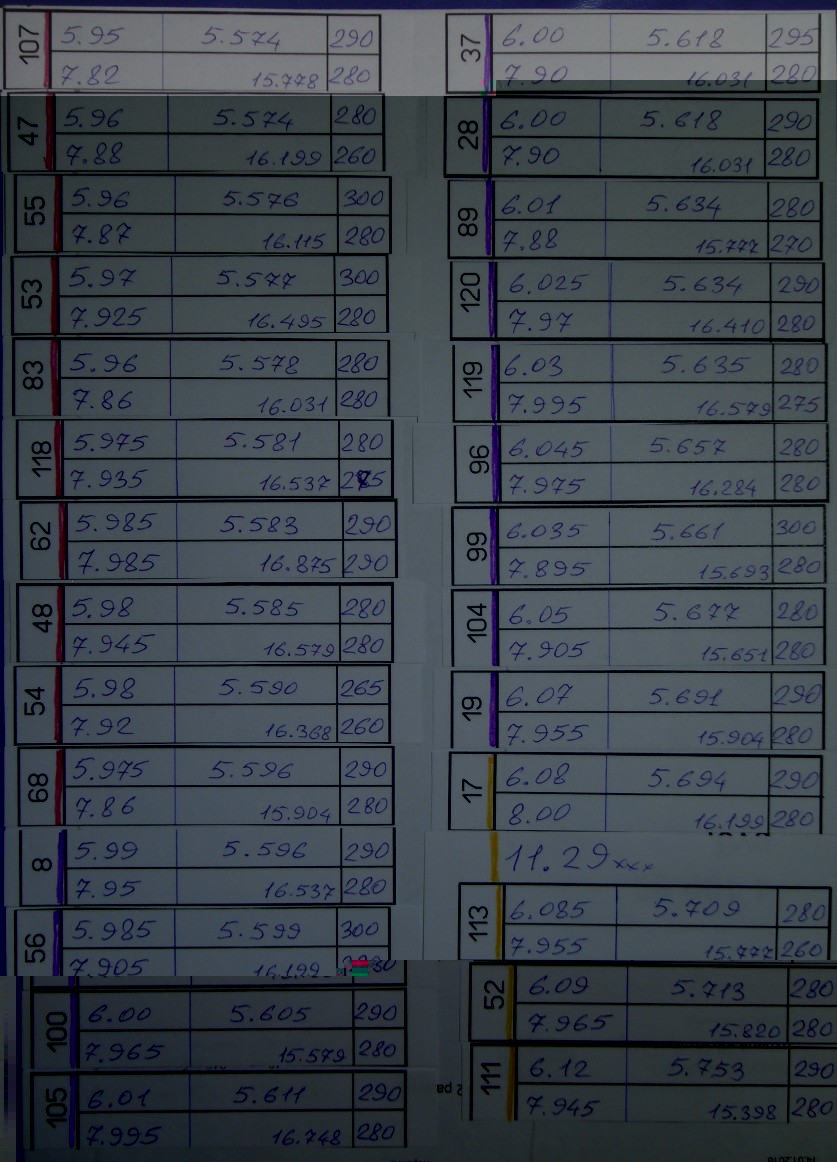 107 5.95 5.574 290
7.82 15.778 280
47 5.96 5.574 280
7.88 16.199 260
55 5.96 5.576 300
7.87 16.115 280
53 5.97 5.577 300
7.925 16.495 280
83 5.96 5.578 280
7.86 16.031 280
118 5.975 5.581 280
7.935 16.537 275
62 5.985 5.583 290
7.985 16.875 290
48 5.98 5.585 280
7.945 16.579 280
54 5.98 5.590 265
7.92 16.368 260
68 5.975 5.596 290
7.86 15.904 280
8 5.99 5.596 290
7.95 16.537 280
56 5.985 5.599 300
7.905 16.199
100 6.00 5.605 290
7.965 15.579 280
105 6.01 5.611 290
7.995 16.748 280
37 6.00 5.618 295
7.90 16.031 280
28 6.00 5.618 290
7.90 16.031 280
89 6.01 5.634 280
7.88 15.777 270
120 6.025 5.634 290
7.97 16.410 280
119 6.03 5.635 280
7.995 16.579 275
96 6.045 5.657 280
7.975 16.284 280
99 6.035 5.661 300
7.895 15.693 280
104 6.05 5.677 280
7.905 15.651 280
19 6.07 5.691 290
7.955 15.904 280
17 6.08 5.694 290
8.00 16.199 280
11.29xxx
113 6.085 5.709 280
7.955 15.777 260
52 6.09 5.713 280
7.965 15.820 280
111 6.12 5.753 290
7.945 15.398 280
14.01.2016